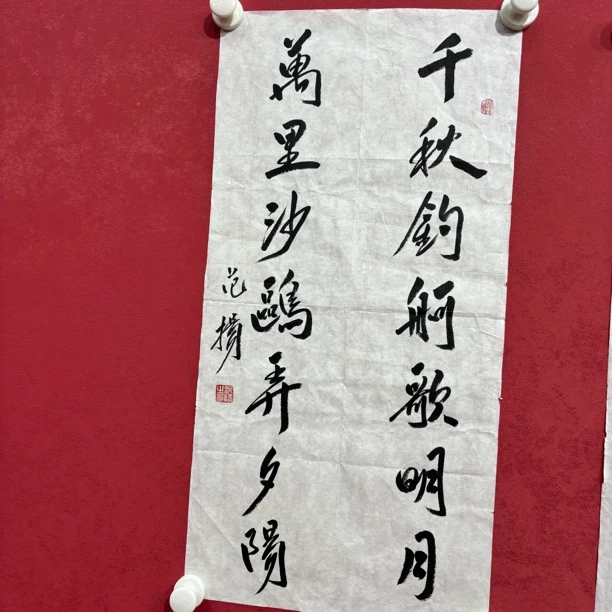 千秋釣舸歌明月
萬里沙鷗弄夕陽
范